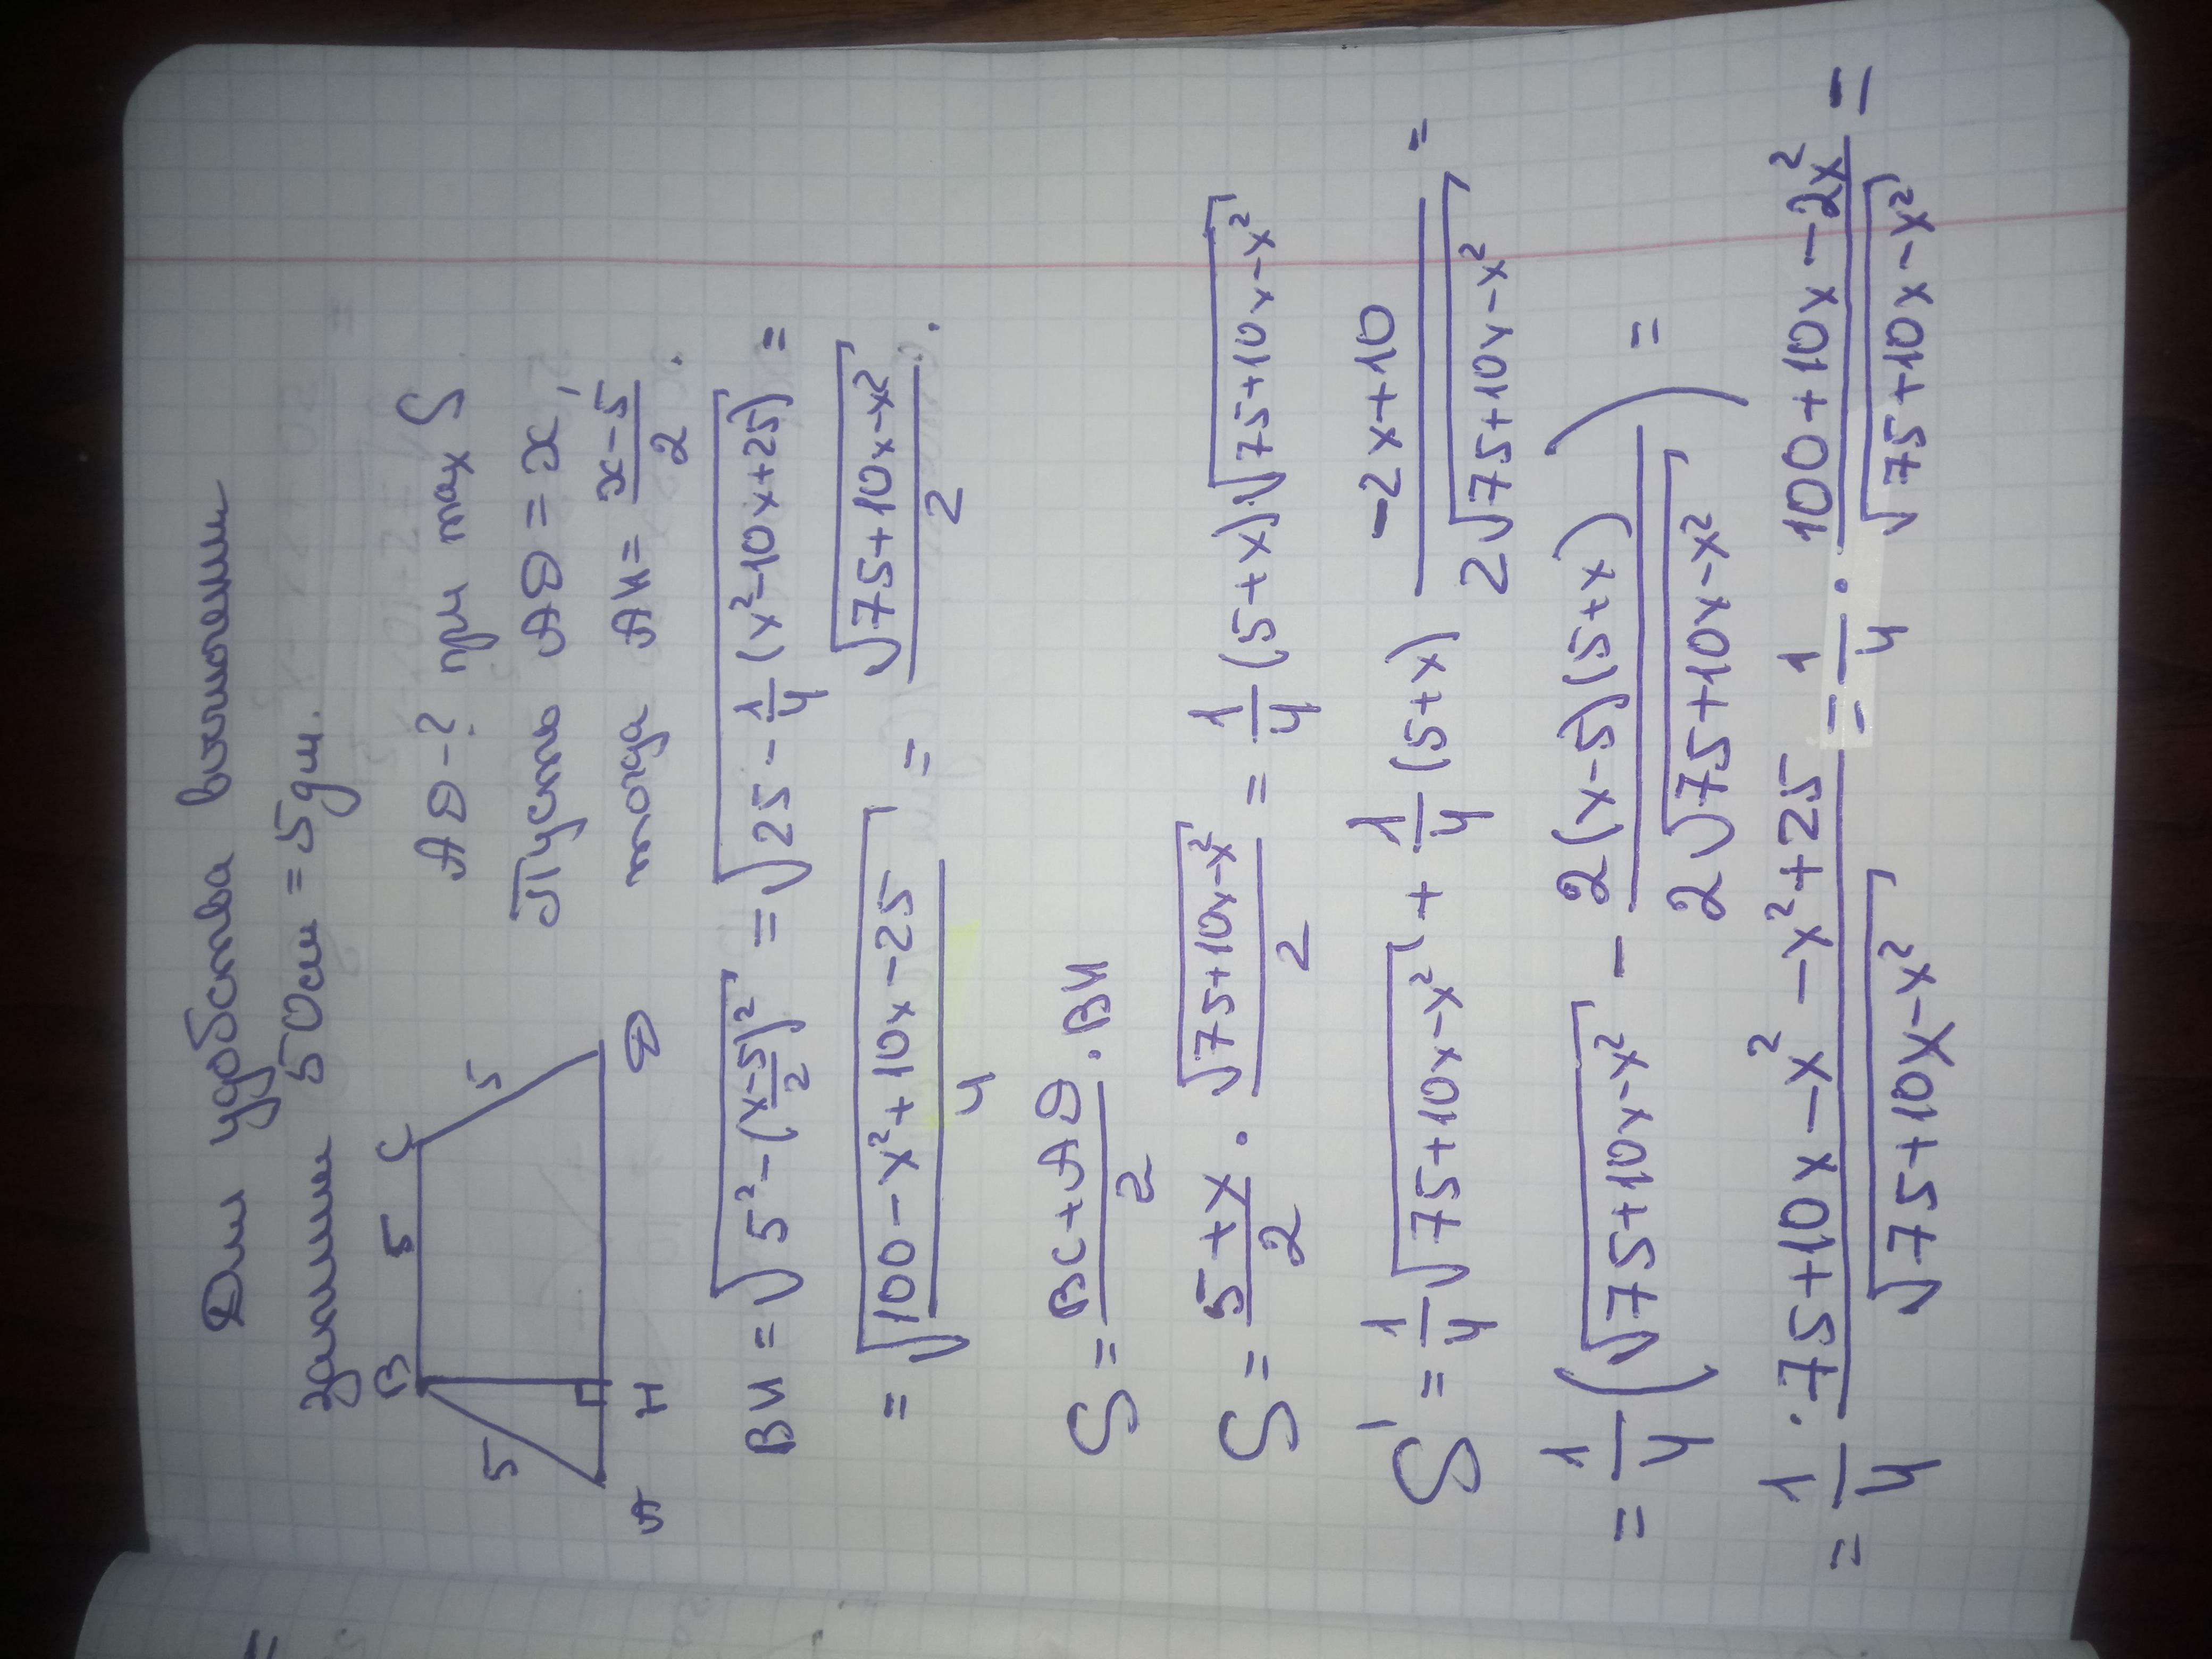 Для удобства вычислений
запишем 50см = 5дм.
B 5 C
5 5
A H D
AD - ? при max S
Пусть AD = x,
тогда AH = \frac{x-5}{2}.
BH = \sqrt{5^2 - (\frac{x-5}{2})^2} = \sqrt{25 - \frac{1}{4}(x^2-10x+25)} =
= \sqrt{\frac{100-x^2+10x-25}{4}} = \frac{\sqrt{75+10x-x^2}}{2}.
S = \frac{BC+AD}{2} · BH
S = \frac{5+x}{2} · \frac{\sqrt{75+10x-x^2}}{2} = \frac{1}{4}(5+x)\sqrt{75+10x-x^2}
S' = \frac{1}{4}\sqrt{75+10x-x^2} + \frac{1}{4}(5+x) \frac{-2x+10}{2\sqrt{75+10x-x^2}} =
= \frac{1}{4}(\sqrt{75+10x-x^2} - \frac{2(x-5)(5+x)}{2\sqrt{75+10x-x^2}}) =
= \frac{1}{4} · \frac{75+10x-x^2-x^2+25}{\sqrt{75+10x-x^2}} = \frac{1}{4} · \frac{100+10x-2x^2}{\sqrt{75+10x-x^2}} =